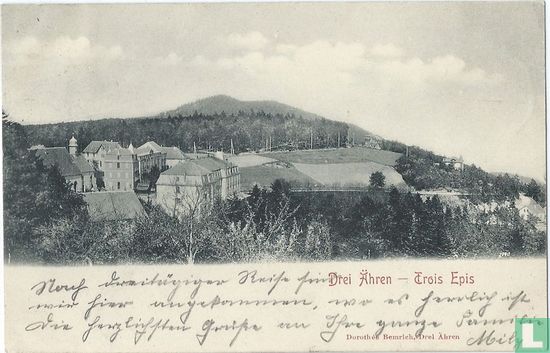 Drei Ähren — Trois Epis
Nach dreitägiger Reise sind
wir hier angekommen, wo es herrlich ist.
Die herzlichsten Grüße an Ihre ganze Familie
Dorothea Bemrich, Drei Ähren
Mily
LastDodo